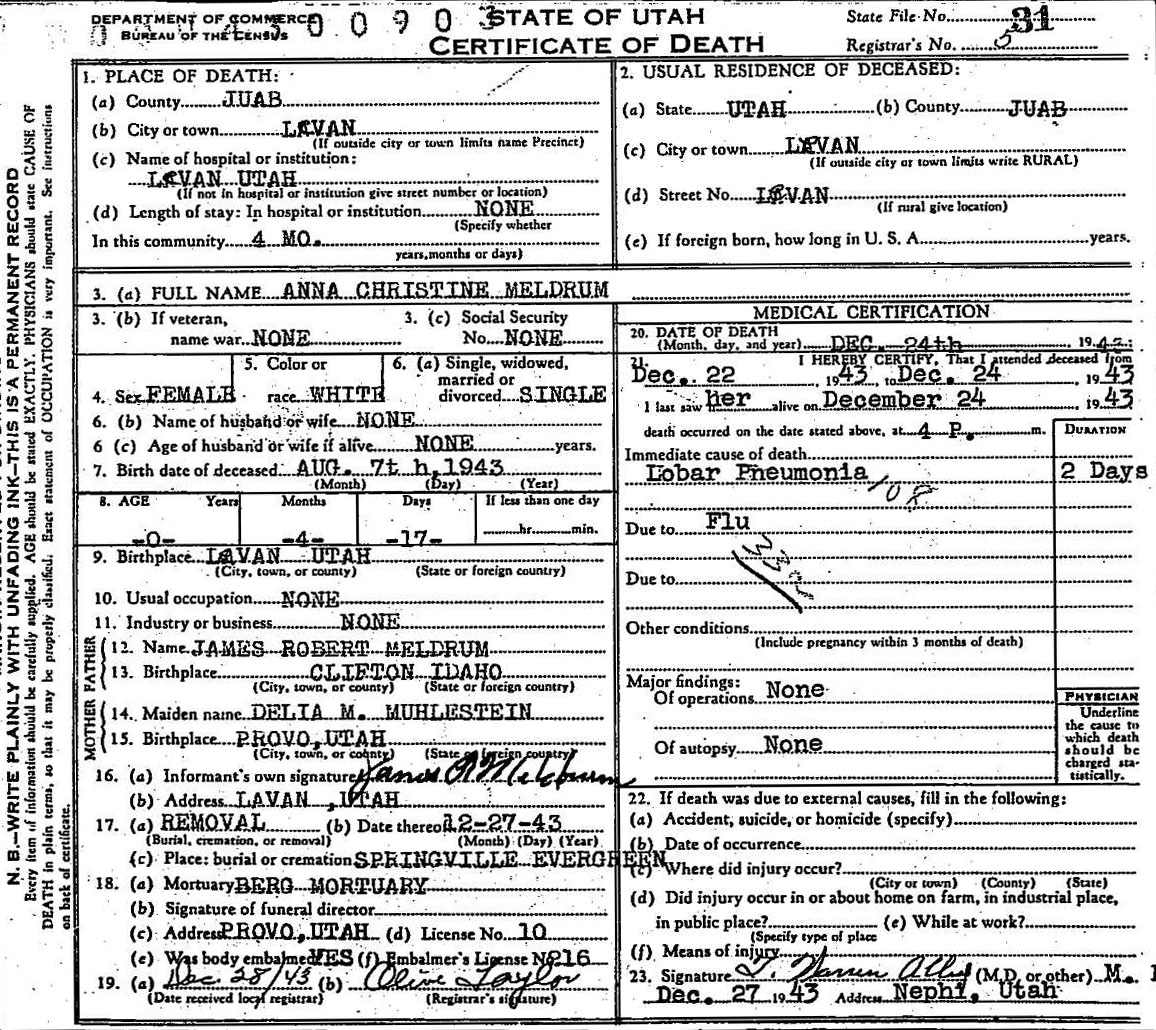 DEPARTMENT OF COMMERCE
BUREAU OF THE CENSUS
0 0 9 0 3
STATE OF UTAH
CERTIFICATE OF DEATH
State File No. 31
Registrar's No. 5
N. B.—WRITE PLAINLY WITH UNFADING INK—THIS IS A PERMANENT RECORD
Every item of information should be carefully supplied. AGE should be stated EXACTLY. PHYSICIANS should state CAUSE OF
DEATH in plain terms, so that it may be properly classified. Exact statement of OCCUPATION is very important. See instructions
on back of certificate.
1. PLACE OF DEATH:
(a) County JUAB
(b) City or town LEVAN
(If outside city or town limits name Precinct)
(c) Name of hospital or institution:
LEVAN UTAH
(If not in hospital or institution give street number or location)
(d) Length of stay: In hospital or institution NONE
(Specify whether
In this community 4 MO.
years, months or days)
2. USUAL RESIDENCE OF DECEASED:
(a) State UTAH (b) County JUAB
(c) City or town LEVAN
(If outside city or town limits write RURAL)
(d) Street No. LEVAN
(If rural give location)
(e) If foreign born, how long in U. S. A. years.
3. (a) FULL NAME ANNA CHRISTINE MELDRUM
3. (b) If veteran,
name war NONE
3. (c) Social Security
No. NONE
4. Sex FEMALE
5. Color or
race WHITE
6. (a) Single, widowed,
married or
divorced SINGLE
6. (b) Name of husband or wife NONE
6 (c) Age of husband or wife if alive NONE years.
7. Birth date of deceased AUG. 7t h,1943
(Month) (Day) (Year)
8. AGE Years Months Days If less than one day
-0- -4- -17- hr. min.
9. Birthplace LEVAN UTAH
(City, town, or county) (State or foreign country)
10. Usual occupation NONE
11. Industry or business NONE
FATHER
12. Name JAMES ROBERT MELDRUM
13. Birthplace CLIFTON IDAHO
(City, town, or county) (State or foreign country)
MOTHER
14. Maiden name DELIA M. MUHLESTEIN
15. Birthplace PROVO, UTAH
(City, town, or county) (State or foreign country)
16. (a) Informant's own signature James R Meldrum
(b) Address LAVAN ,UTAH
17. (a) REMOVAL (b) Date thereof 12-27-43
(Burial, cremation, or removal) (Month) (Day) (Year)
(c) Place: burial or cremation SPRINGVILLE EVERGREEN
18. (a) Mortuary BERG MORTUARY
(b) Signature of funeral director
(c) Address PROVO, UTAH (d) License No. 10
(e) Was body embalmed YES (f) Embalmer's License No. 216
19. (a) Dec. 28/43 (b) Olive Taylor
(Date received local registrar) (Registrar's signature)
MEDICAL CERTIFICATION
20. DATE OF DEATH
(Month, day, and year) DEC. 24th 1943:
21. I HEREBY CERTIFY, That I attended deceased from
Dec. 22 1943, to Dec. 24, 1943
I last saw her alive on December 24 1943
death occurred on the date stated above, at 4 P. m.
DURATION
Immediate cause of death
Lobar Pneumonia 2 Days
108
Due to Flu
Due to
Other conditions
(Include pregnancy within 3 months of death)
Major findings:
Of operations None
Of autopsy None
PHYSICIAN
Underline
the cause to
which death
should be
charged sta-
tistically.
22. If death was due to external causes, fill in the following:
(a) Accident, suicide, or homicide (specify)
(b) Date of occurrence
(c) Where did injury occur?
(City or town) (County) (State)
(d) Did injury occur in or about home on farm, in industrial place,
in public place? (e) While at work?
(Specify type of place
(f) Means of injury
23. Signature Warren (M.D. or other) M.
Dec. 27 1943 Address Nephi, Utah